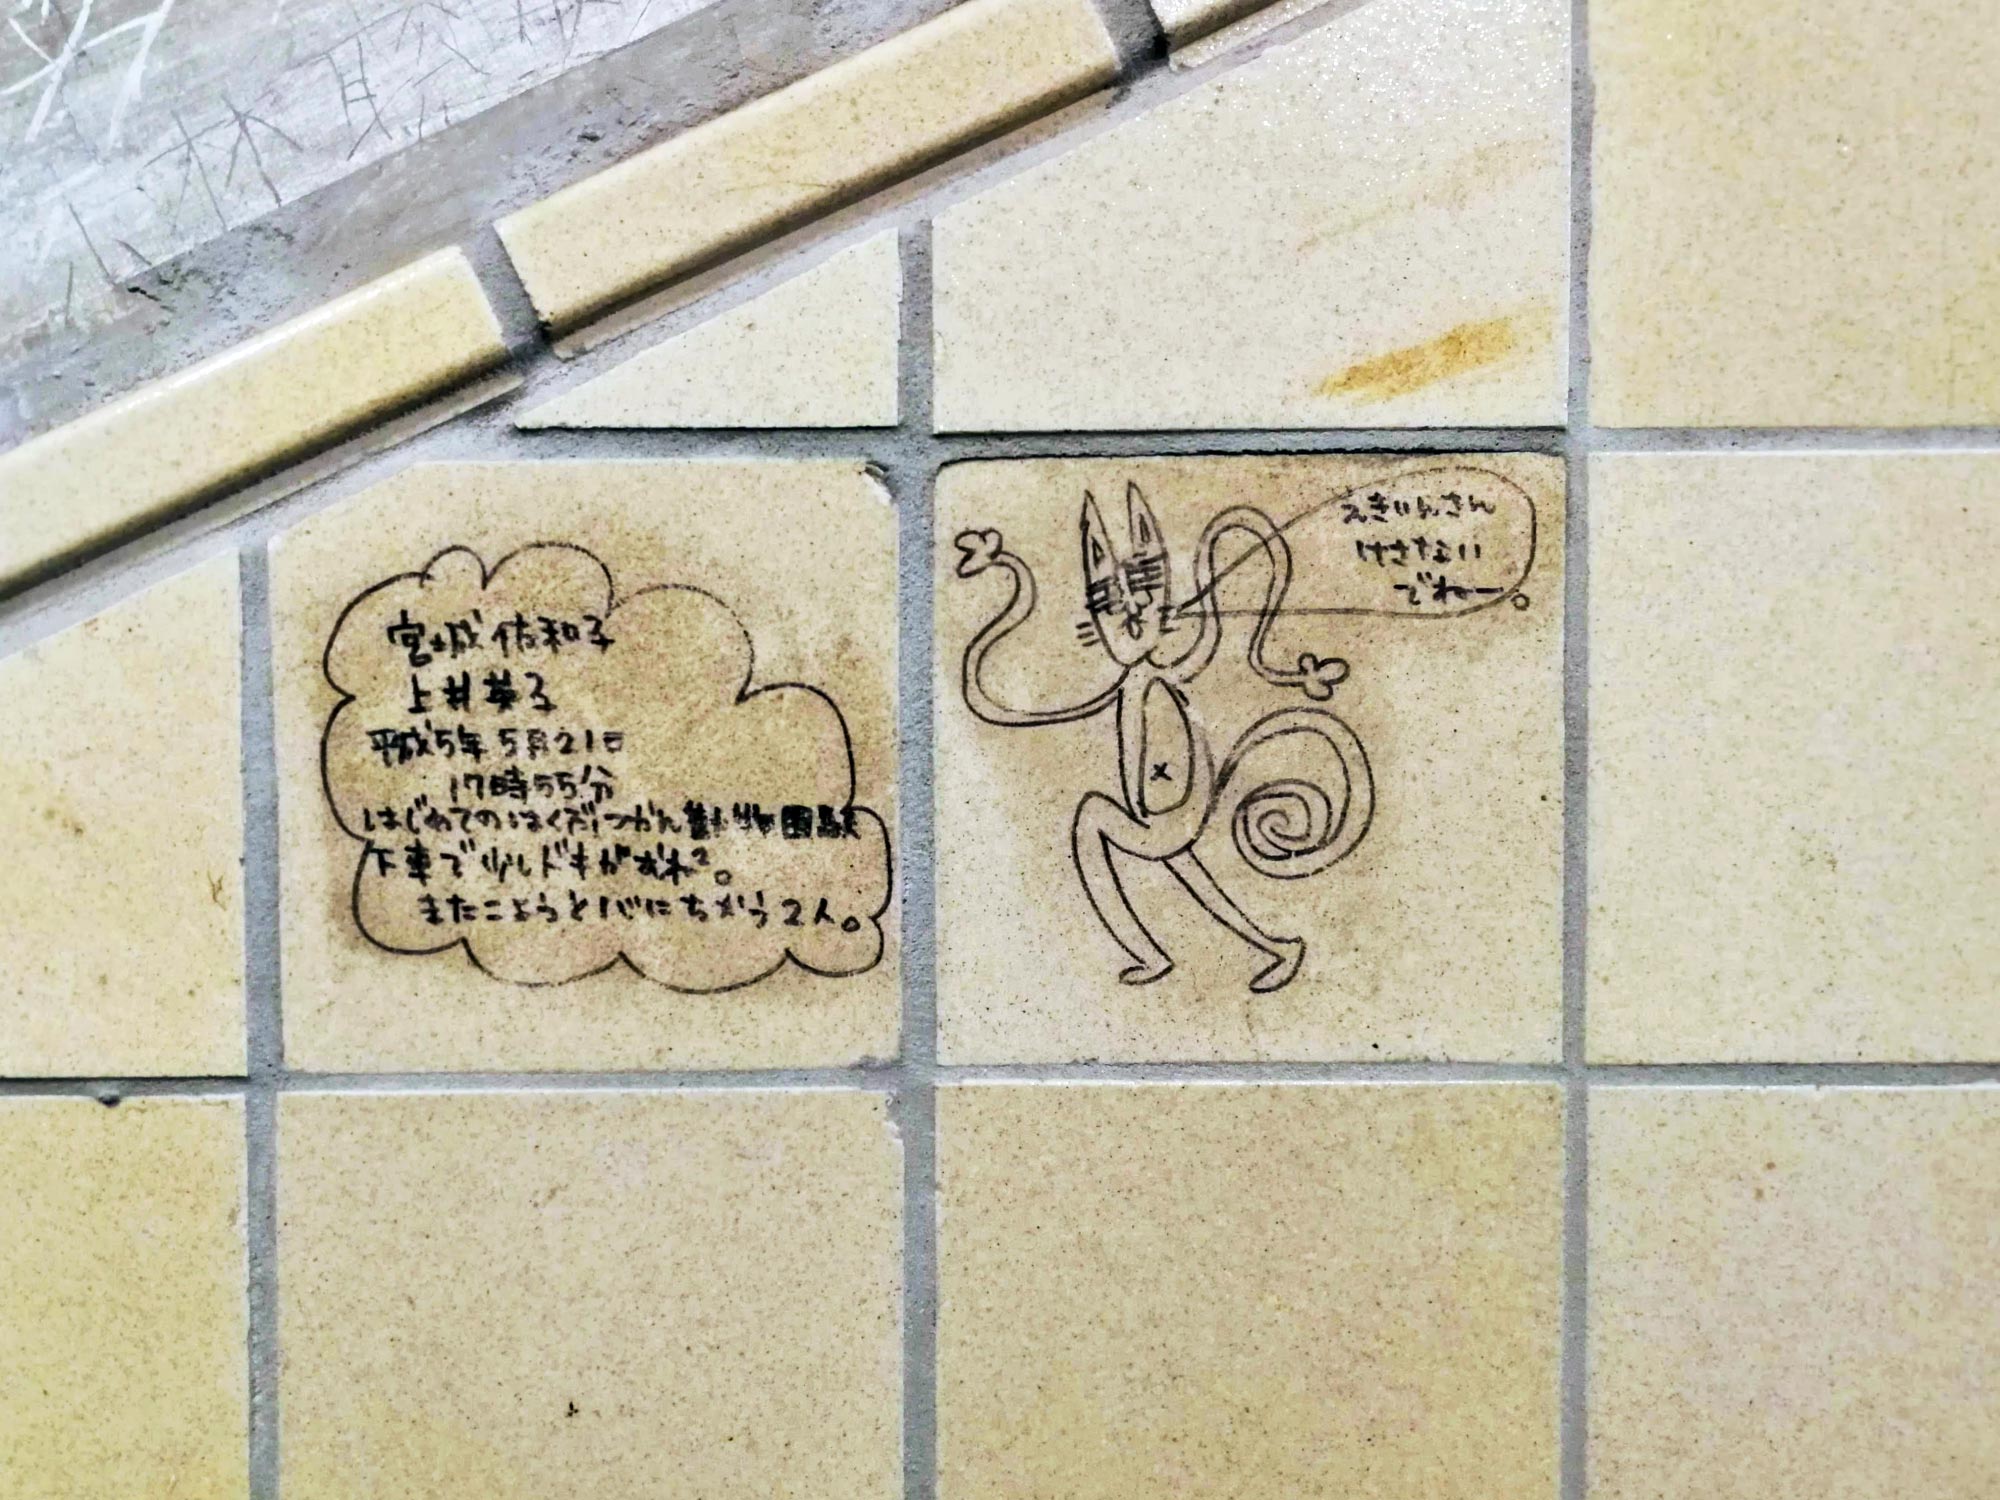 宮城佐和子
上井英子
平成5年5月21日
17時55分
はじめてのはくぶつかん動物園駅
下車で少しドキがむねっ。
またこようと心にちかう2人。
えきいんさん
けさない
でねー。
林